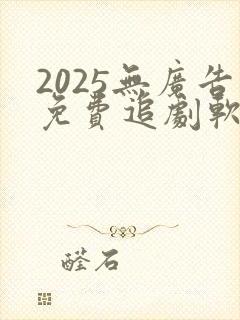 2025無廣告
免費追劇軟
醛石